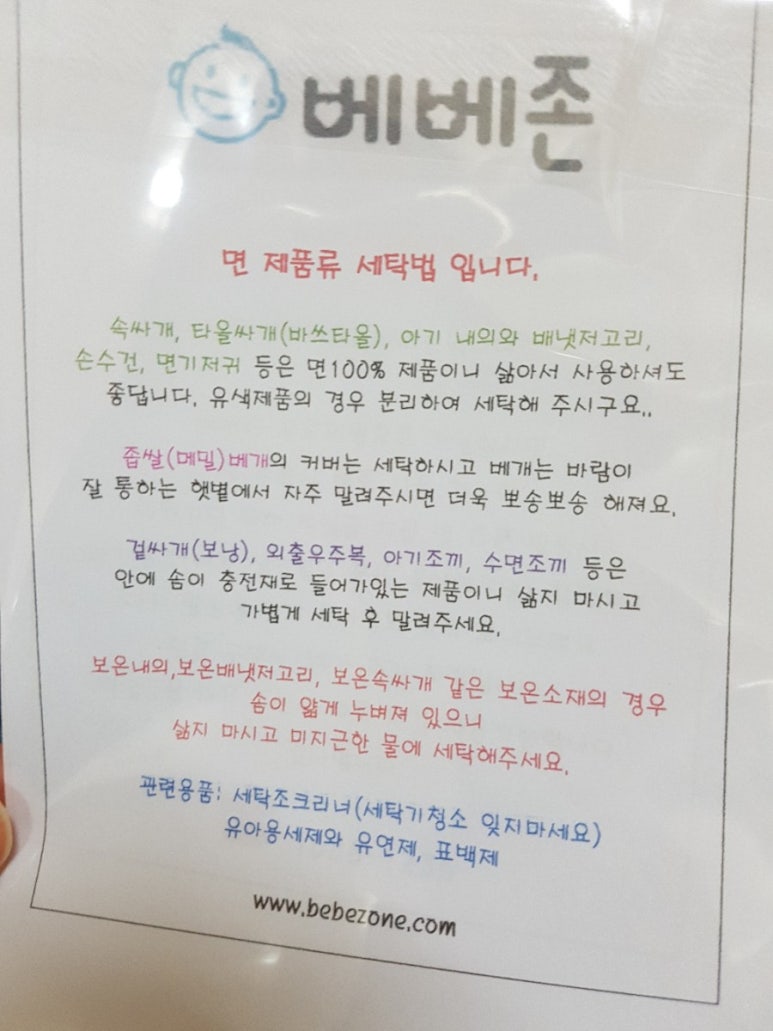 베베존
면 제품류 세탁법 입니다.
속싸개, 타올싸개(바쓰타올), 아기 내의와 배냇저고리,
손수건, 면기저귀 등은 면100% 제품이니 삶아서 사용하셔도
좋답니다. 유색제품의 경우 분리하여 세탁해 주시구요..
좁쌀(메밀)베개의 커버는 세탁하시고 베개는 바람이
잘 통하는 햇볕에서 자주 말려주시면 더욱 뽀송뽀송 해져요.
겉싸개(보낭), 외출우주복, 아기조끼, 수면조끼 등은
안에 솜이 충전재로 들어가있는 제품이니 삶지 마시고
가볍게 세탁 후 말려주세요.
보온내의,보온배냇저고리, 보온속싸개 같은 보온소재의 경우
솜이 얇게 누벼져 있으니
삶지 마시고 미지근한 물에 세탁해주세요.
관련용품: 세탁조크리너(세탁기청소 잊지마세요)
유아용세제와 유연제, 표백제
www.bebezone.com